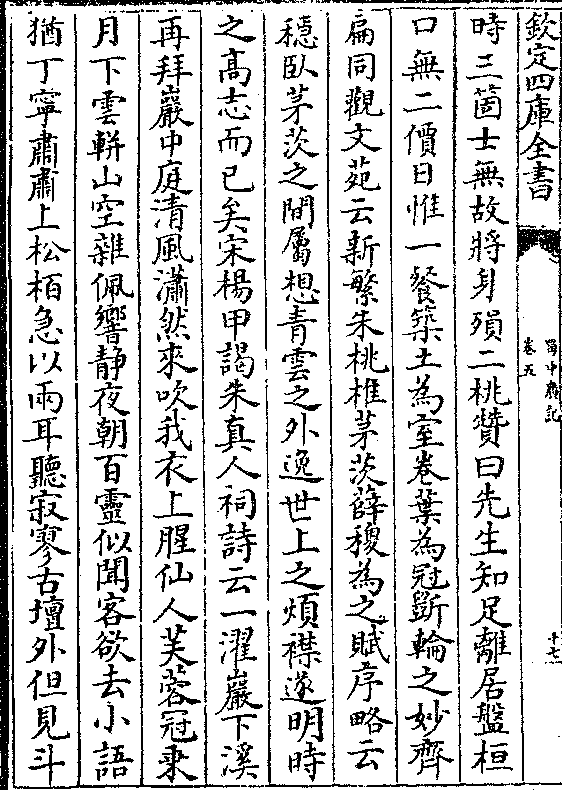 欽定四庫全書
蜀中廣記
卷五
十七
時三箇士無故將身殞二桃贊曰先生知足離居盤桓
口無二價日惟一餐築土為室卷葉為冠斲輪之妙齊
扁同觀文苑云新繁朱桃椎茅茨薛稷為之賦序略云
穩臥茅茨之間屬想青雲之外逸世上之煩襟遂明時
之高志而已矣宋楊甲謁朱真人祠詩云一濯巖下溪
再拜巖中庭清風瀟然來吹我衣上腥仙人芙蓉冠乗
月下雲輧山空雜佩響静夜朝百靈似聞客欲去小語
猶丁寧肅肅上松栢急以兩耳聽寂寥古壇外但見斗